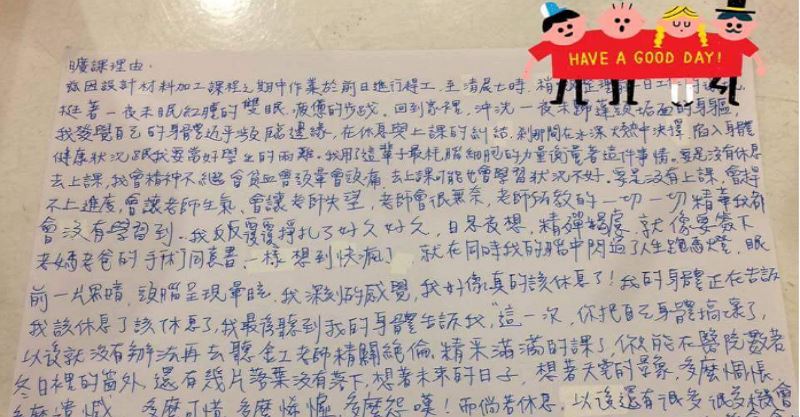 HAVE A GOOD DAY!
曠課理由.
茲因設計材料加工課程之期中作業於前日進行趕工,至清晨七時,稍
挺著一夜未眠紅腫的雙眼,疲憊的步伐,回到家裡,沖洗一夜未歸蓬頭垢面的身軀,
我發覺自己的身體近乎瀕臨邊緣,在休息與上課的糾結,剎那間在水深火熱中決擇,陷入身體
健康狀況跟我要當好學生的兩難。我用了這輩子最耗腦細胞的力量衡量著這件事情。要是沒有休息
去上課,我會精神不繼會貧血會頭暈會頭痛,去上課可能也會學習狀況不好。要是沒有上課,會趕
不上進度,會讓老師生氣,會讓老師失望,老師會很無奈,老師所教的一切一切精華我都
會沒有學習到..我反反覆覆掙扎了好久好久,日思夜想,精殫竭慮,就像要簽下
老媽老爸的手術同意書一樣想到快瘋了,就在同時我的腦中閃過了人生跑馬燈,眼
前一片黑暗,頭腦呈現暈眩.我深刻的感覺,我好像真的該休息了!我的身體正在告訴
我該休息了該休息了,我最後聽到我的身體告訴我"這一次,你把自己身體搞壞了,
以後就沒有辦法再去聽金工老師精闢絕倫,精采滿滿的課了,你只能在醫院數著
冬日裡的窗外,還有幾片落葉沒有落下,想著未來的日子,想著天堂的景象,多麼惆悵,
多麼遺憾,多麼可惜,多麼怨嘆!而倘若休息,以後還有很多很多機會